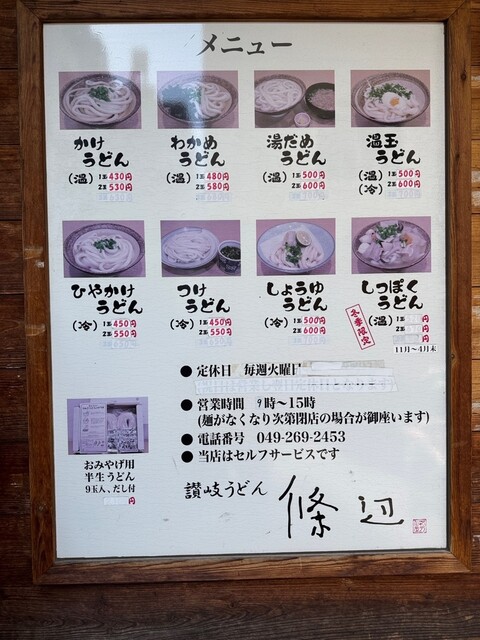 メニュー
かけ
うどん
(温) 1玉 430円
2玉 530円
わかめ
うどん
(温) 1玉 480円
2玉 580円
湯だめ
うどん
(温) 1玉 500円
2玉 600円
温玉
うどん
(温) 1玉 500円
(冷) 2玉 600円
ひやかけ
うどん
(冷) 1玉 450円
2玉 550円
つけ
うどん
(冷) 1玉 450円
2玉 550円
しょうゆ
うどん
(冷) 1玉 500円
2玉 600円
しっぽく
うどん
冬季限定
(温) 1玉 円
円
円
11月〜4月末
● 定休日 毎週火曜日
● 営業時間 9時〜15時
(麺がなくなり次第閉店の場合が御座います)
● 電話番号 049-269-2453
● 当店はセルフサービスです
おみやげ用
半生うどん
9玉入、だし付
円
讃岐うどん 條辺